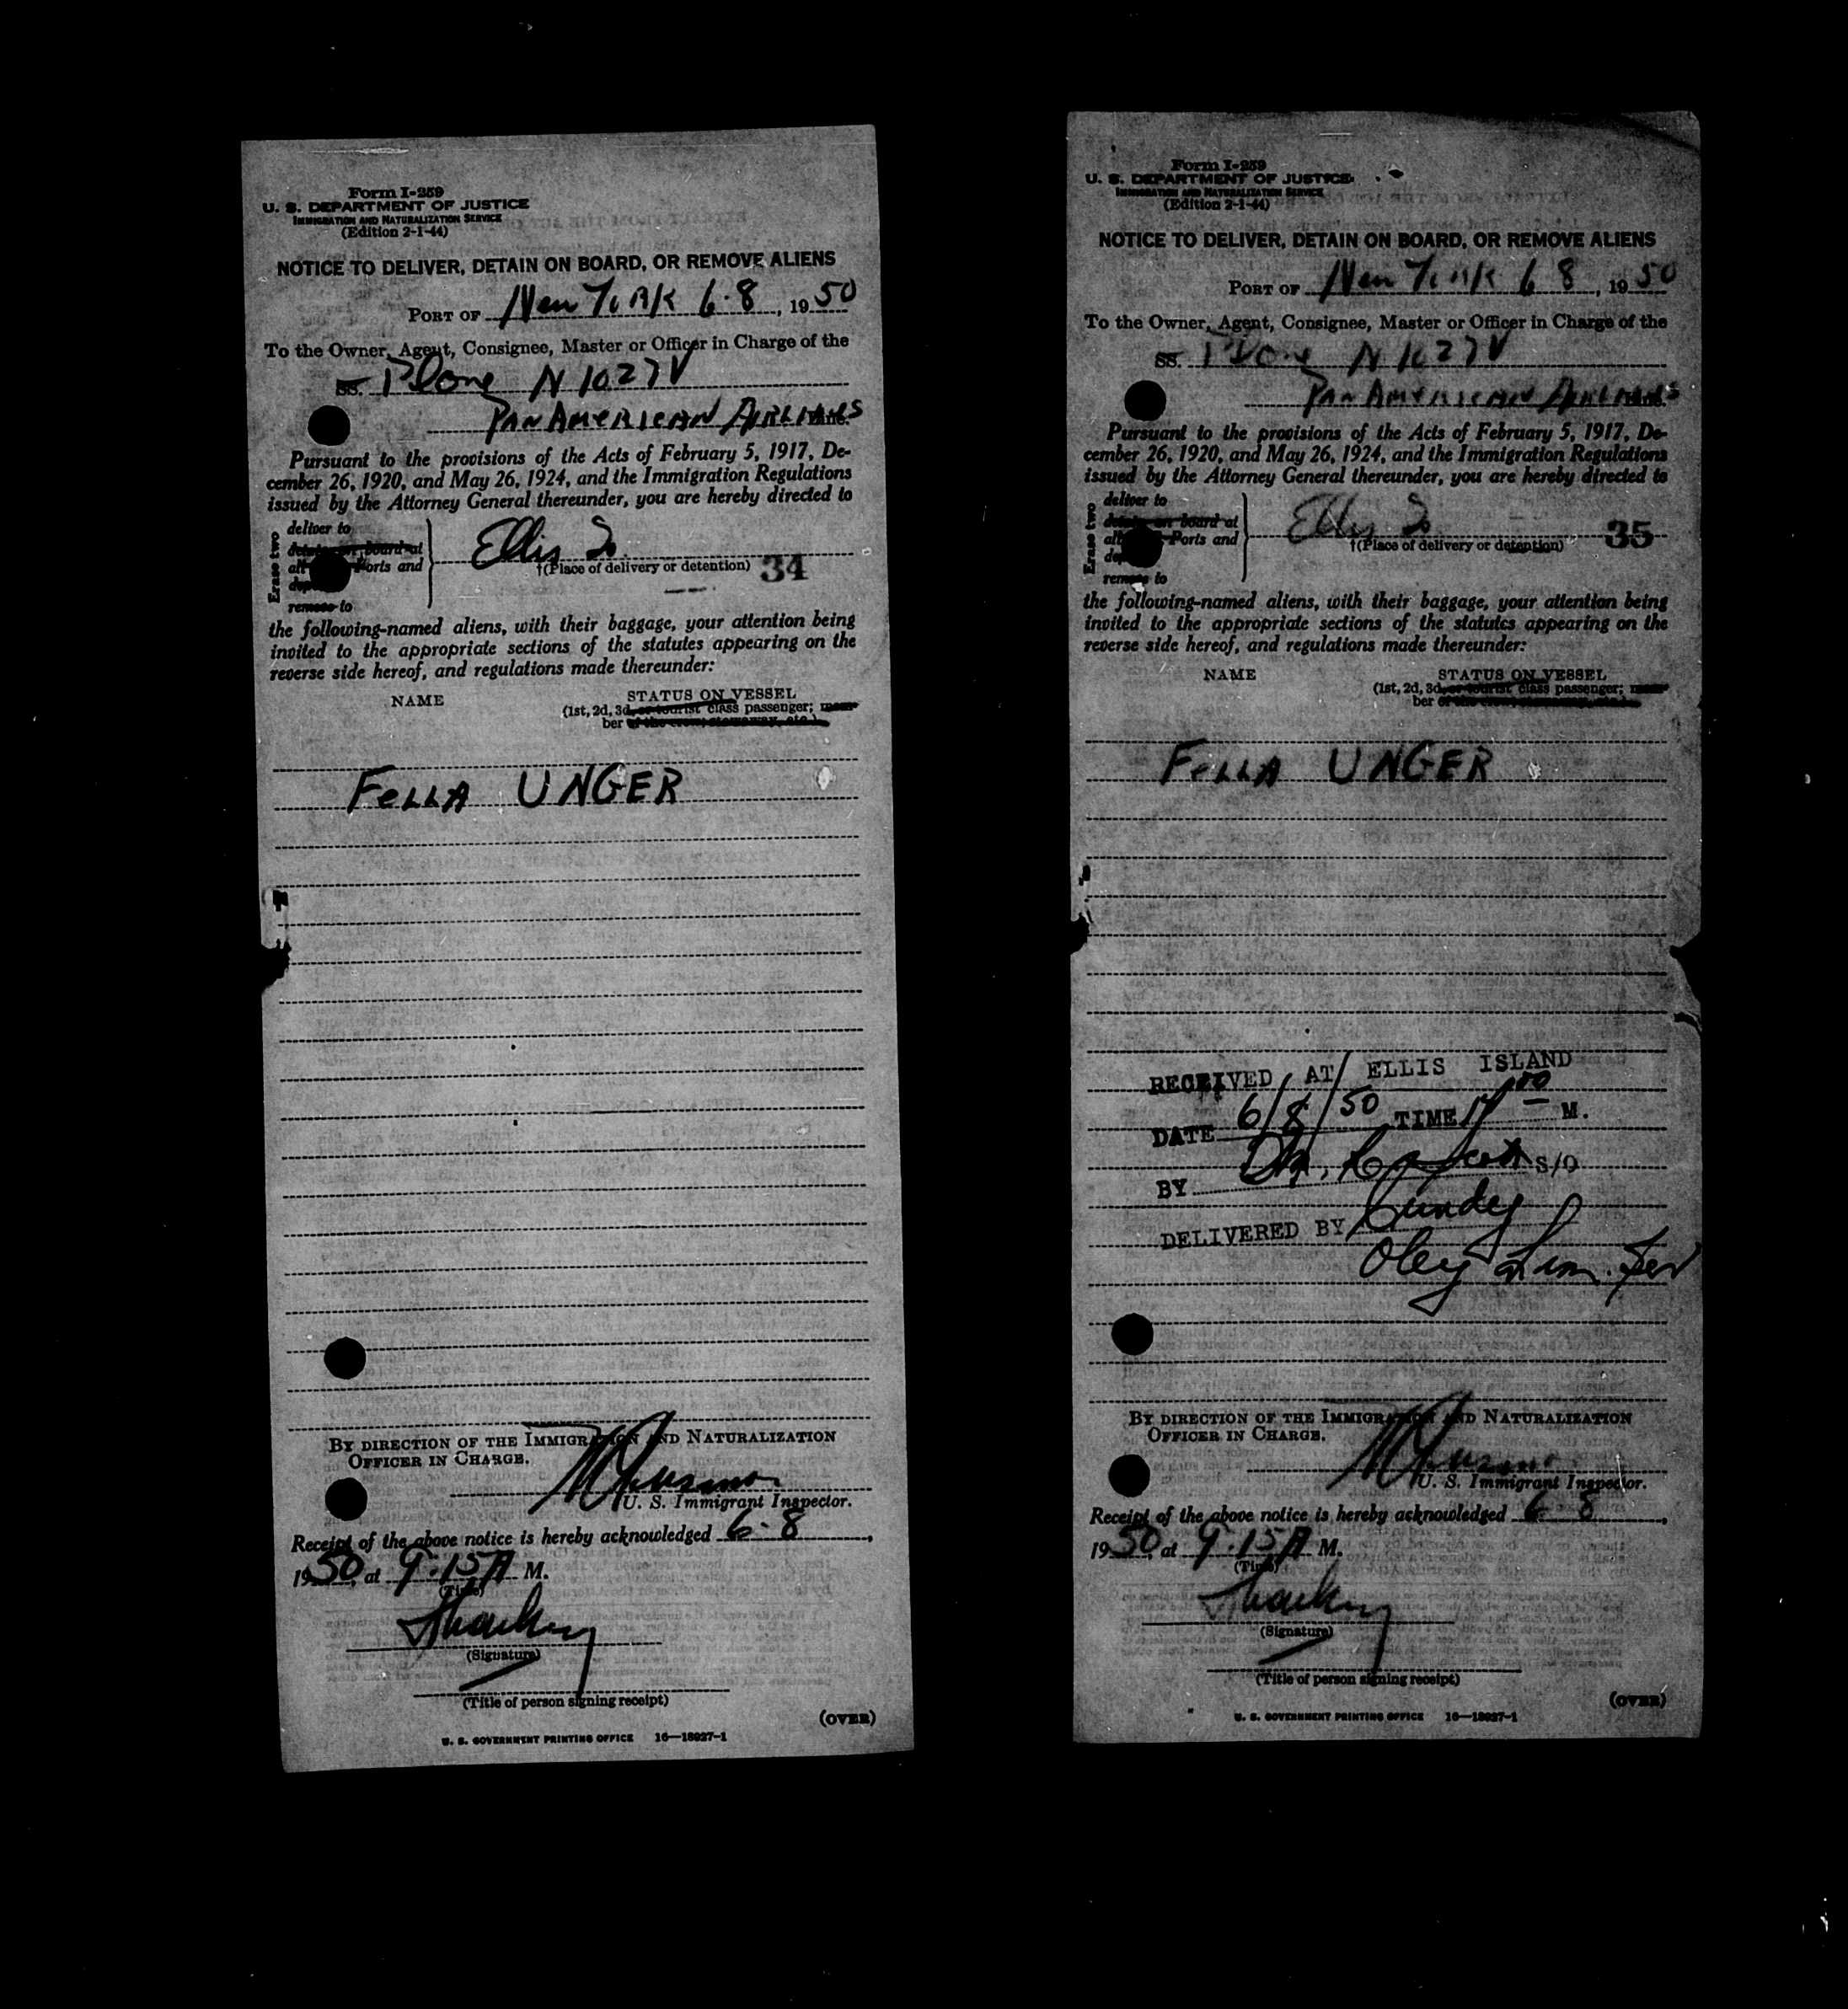 Form I-259
U. S. DEPARTMENT OF JUSTICE
IMMIGRATION AND NATURALIZATION SERVICE
(Edition 2-1-44)
NOTICE TO DELIVER, DETAIN ON BOARD, OR REMOVE ALIENS
PORT OF New York 6-8, 1950
To the Owner, Agent, Consignee, Master or Officer in Charge of the
SS. Plane N 1027V
PAN AMERICAN AIRLINES Line.
Pursuant to the provisions of the Acts of February 5, 1917, De-
cember 26, 1920, and May 26, 1924, and the Immigration Regulations
issued by the Attorney General thereunder, you are hereby directed to
Erase two
deliver to
detain on board at
all Ports and
remove to
Ellis Is
†(Place of delivery or detention) 34
the following-named aliens, with their baggage, your attention being
invited to the appropriate sections of the statutes appearing on the
reverse side hereof, and regulations made thereunder:
NAME
STATUS ON VESSEL
(1st, 2d, 3d, or tourist class passenger; mem-
ber of the crew; stowaway, etc.)
FELLA UNGER
BY DIRECTION OF THE IMMIGRATION AND NATURALIZATION
OFFICER IN CHARGE.
U. S. Immigrant Inspector.
Receipt of the above notice is hereby acknowledged 6-8,
1950, at 9:15 A M.
(Time)
(Signature)
(Title of person signing receipt)
(OVER)
U. S. GOVERNMENT PRINTING OFFICE 16—18027-1
Form I-259
U. S. DEPARTMENT OF JUSTICE
IMMIGRATION AND NATURALIZATION SERVICE
(Edition 2-1-44)
NOTICE TO DELIVER, DETAIN ON BOARD, OR REMOVE ALIENS
PORT OF New York 6 8, 1950
To the Owner, Agent, Consignee, Master or Officer in Charge of the
SS. Plane N 1027V
PAN AMERICAN AIRLINES Line.
Pursuant to the provisions of the Acts of February 5, 1917, De-
cember 26, 1920, and May 26, 1924, and the Immigration Regulations
issued by the Attorney General thereunder, you are hereby directed to
Erase two
deliver to
detain on board at
all Ports and
remove to
Ellis Is
†(Place of delivery or detention) 35
the following-named aliens, with their baggage, your attention being
invited to the appropriate sections of the statutes appearing on the
reverse side hereof, and regulations made thereunder:
NAME
STATUS ON VESSEL
(1st, 2d, 3d, or tourist class passenger; mem-
ber of the crew; stowaway, etc.)
FELLA UNGER
RECEIVED AT ELLIS ISLAND
DATE 6/8/50 TIME M.
BY S/O
DELIVERED BY
BY DIRECTION OF THE IMMIGRATION AND NATURALIZATION
OFFICER IN CHARGE.
U. S. Immigrant Inspector.
Receipt of the above notice is hereby acknowledged 6 8,
1950, at 9:15 A M.
(Time)
(Signature)
(Title of person signing receipt)
(OVER)
U. S. GOVERNMENT PRINTING OFFICE 16—18027-1